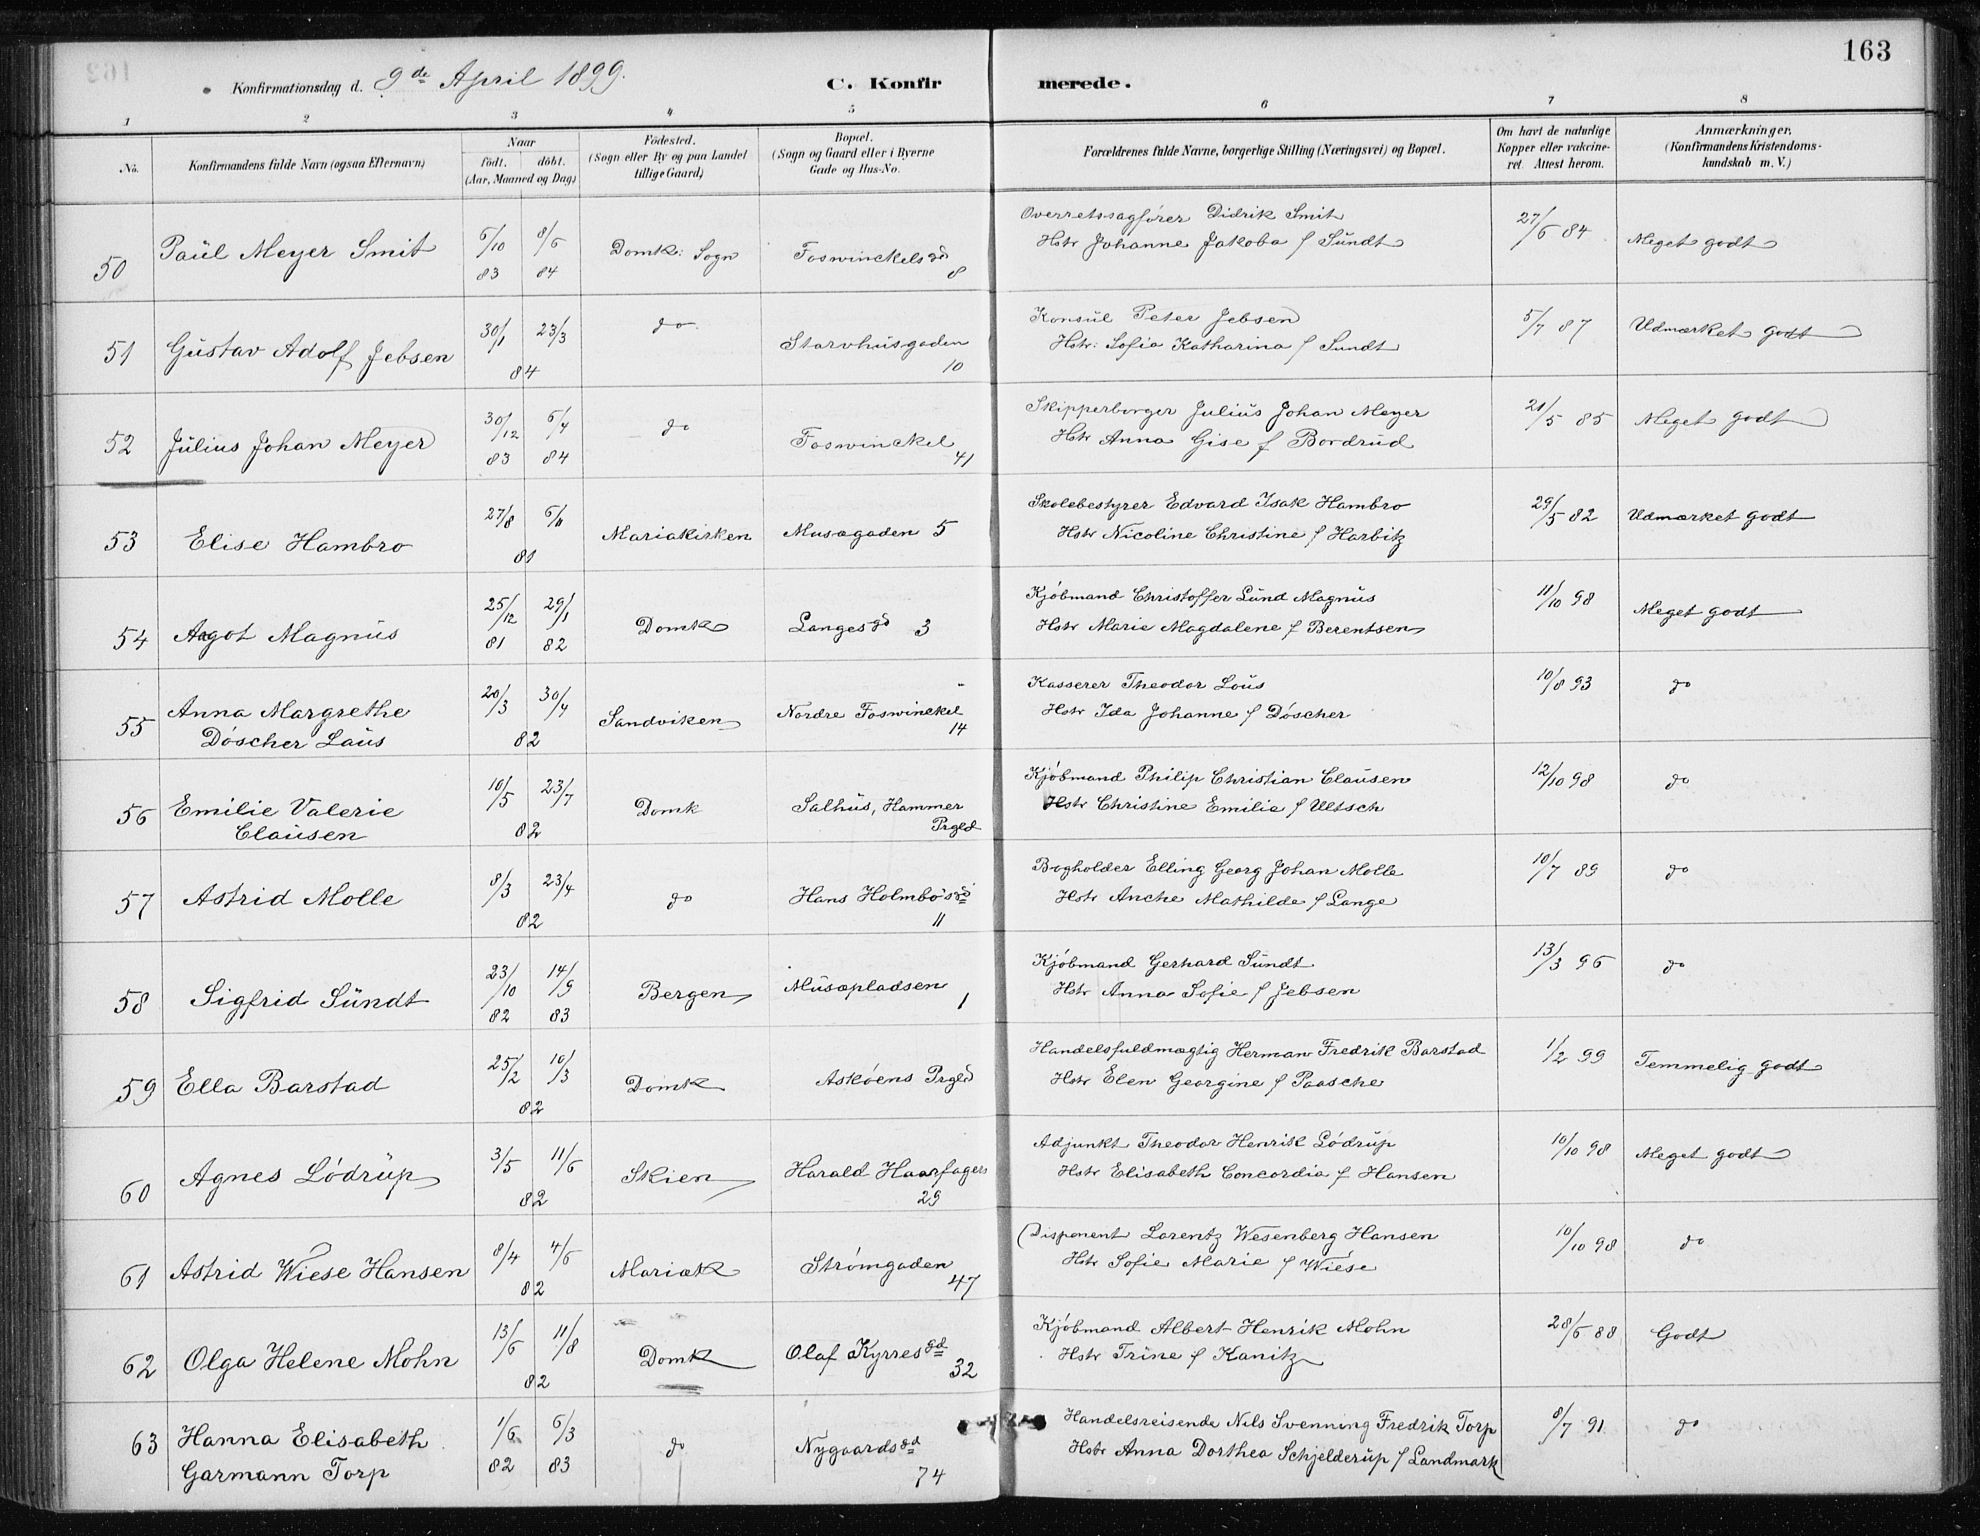 163
Konfirmationsdag d. 9de April 1899.
C. Konfir merede.
1 2 3 4 5 6 7 8
No.
Konfirmandens fulde Navn (ogsaa Efternavn)
Naar
født. døbt.
(Aar, Maaned og Dag)
Fødested.
(Sogn eller By og paa Landet
tillige Gaard)
Bopæl.
(Sogn og Gaard eller i Byerne
Gade og Hus-No.
Forældrenes fulde Navne, borgerlige Stilling (Næringsvei) og Bopæl.
Om havt de naturlige
Kopper eller vakcine-
ret. Attest herom.
Anmærkninger.
(Konfirmandens Kristendoms-
kundskab m. V.)
50 Paul Meyer Smit 6/10 83 8/6 84 Domk: Sogn Foswinckelsgd 8
Overretssagfører Didrik Smit 27/6 84 Meget godt
Hstr Johanne Jakoba f Sundt
51 Gustav Adolf Jebsen 30/1 23/3 84 do Starvhusgaden 10
Konsul Peter Jebsen 5/7 87 Udmærket godt
Hstr: Sofia Katharina f Sundt
52 Julius Johan Meyer 30/12 83 6/4 84 do Foswinckel 41
Skipperborger Julius Johan Meyer 21/5 85 Meget godt
Hstr Anna Gise f Bordrud
53 Elise Hambro 27/8 6/11 81 Mariakirken Musægaden 5
Skolebestyrer Edvard Isak Hambro 29/5 82 Udmærket godt
Hstr Nicoline Christine f Harbitz
54 Aagot Magnus 25/12 81 29/1 82 Domk Langesgd 3
Kjøbmand Christoffer Lund Magnus 11/10 98 Meget godt
Hstr Marie Magdalene f Berentsen
55 Anna Margrethe
Døscher Laus 20/3 30/4 82 Sandviken Nordre Foswinckel 14
Kasserer Theodor Lous 10/8 93 do
Hstr Ida Johanne f Døscher
56 Emilie Valerie
Clausen 10/5 23/7 82 Domk Salhus, Hammer
Prgld
Kjøbmand Philip Christian Clausen 12/10 98 do
Hstr Christine Emilie f Ueltsch
57 Astrid Molle 8/3 23/4 82 do Hans Holmboesgd 11
Bogholder Elling Georg Johan Molle 10/7 89 do
Hstr Anche Mathilde f Lange
58 Sigfrid Sundt 23/10 82 14/9 83 Bergen Musæpladsen 1
Kjøbmand Gerhard Sundt 13/3 96 do
Hstr Anna Sofie f Jebsen
59 Ella Barstad 25/2 10/3 82 Domk Askøens Prgld
Handelsfuldmægtig Herman Fredrik Barstad 1/2 99 Temmelig godt
Hstr Elen Georgine f Paasche
60 Agnes Lødrup 3/5 11/6 82 Skien Harald Haarfagers 29
Adjunkt Theodor Henrik Lødrup 10/10 98 Meget godt
Hstr Elisabeth Concordia f Hansen
61 Astrid Wiese Hansen 8/4 4/6 82 Mariak Strømgaden 47
Disponent Lorentz Wesenberg Hansen 10/10 98 do
Hstr Sofie Marie f Wiese
62 Olga Helene Mohn 13/6 11/8 82 Domk Olaf Kyrresgd 32
Kjøbmand Albert Henrik Mohn 28/6 88 Godt
Hstr Trine f Kanitz
63 Hanna Elisabeth
Garmann Torp 1/6 82 6/3 83 do Nygaardsgd 74
Handelsreisende Nils Svenning Fredrik Torp 8/7 91 do
Hstr Anna Dorthea Schjelderup f Landmark